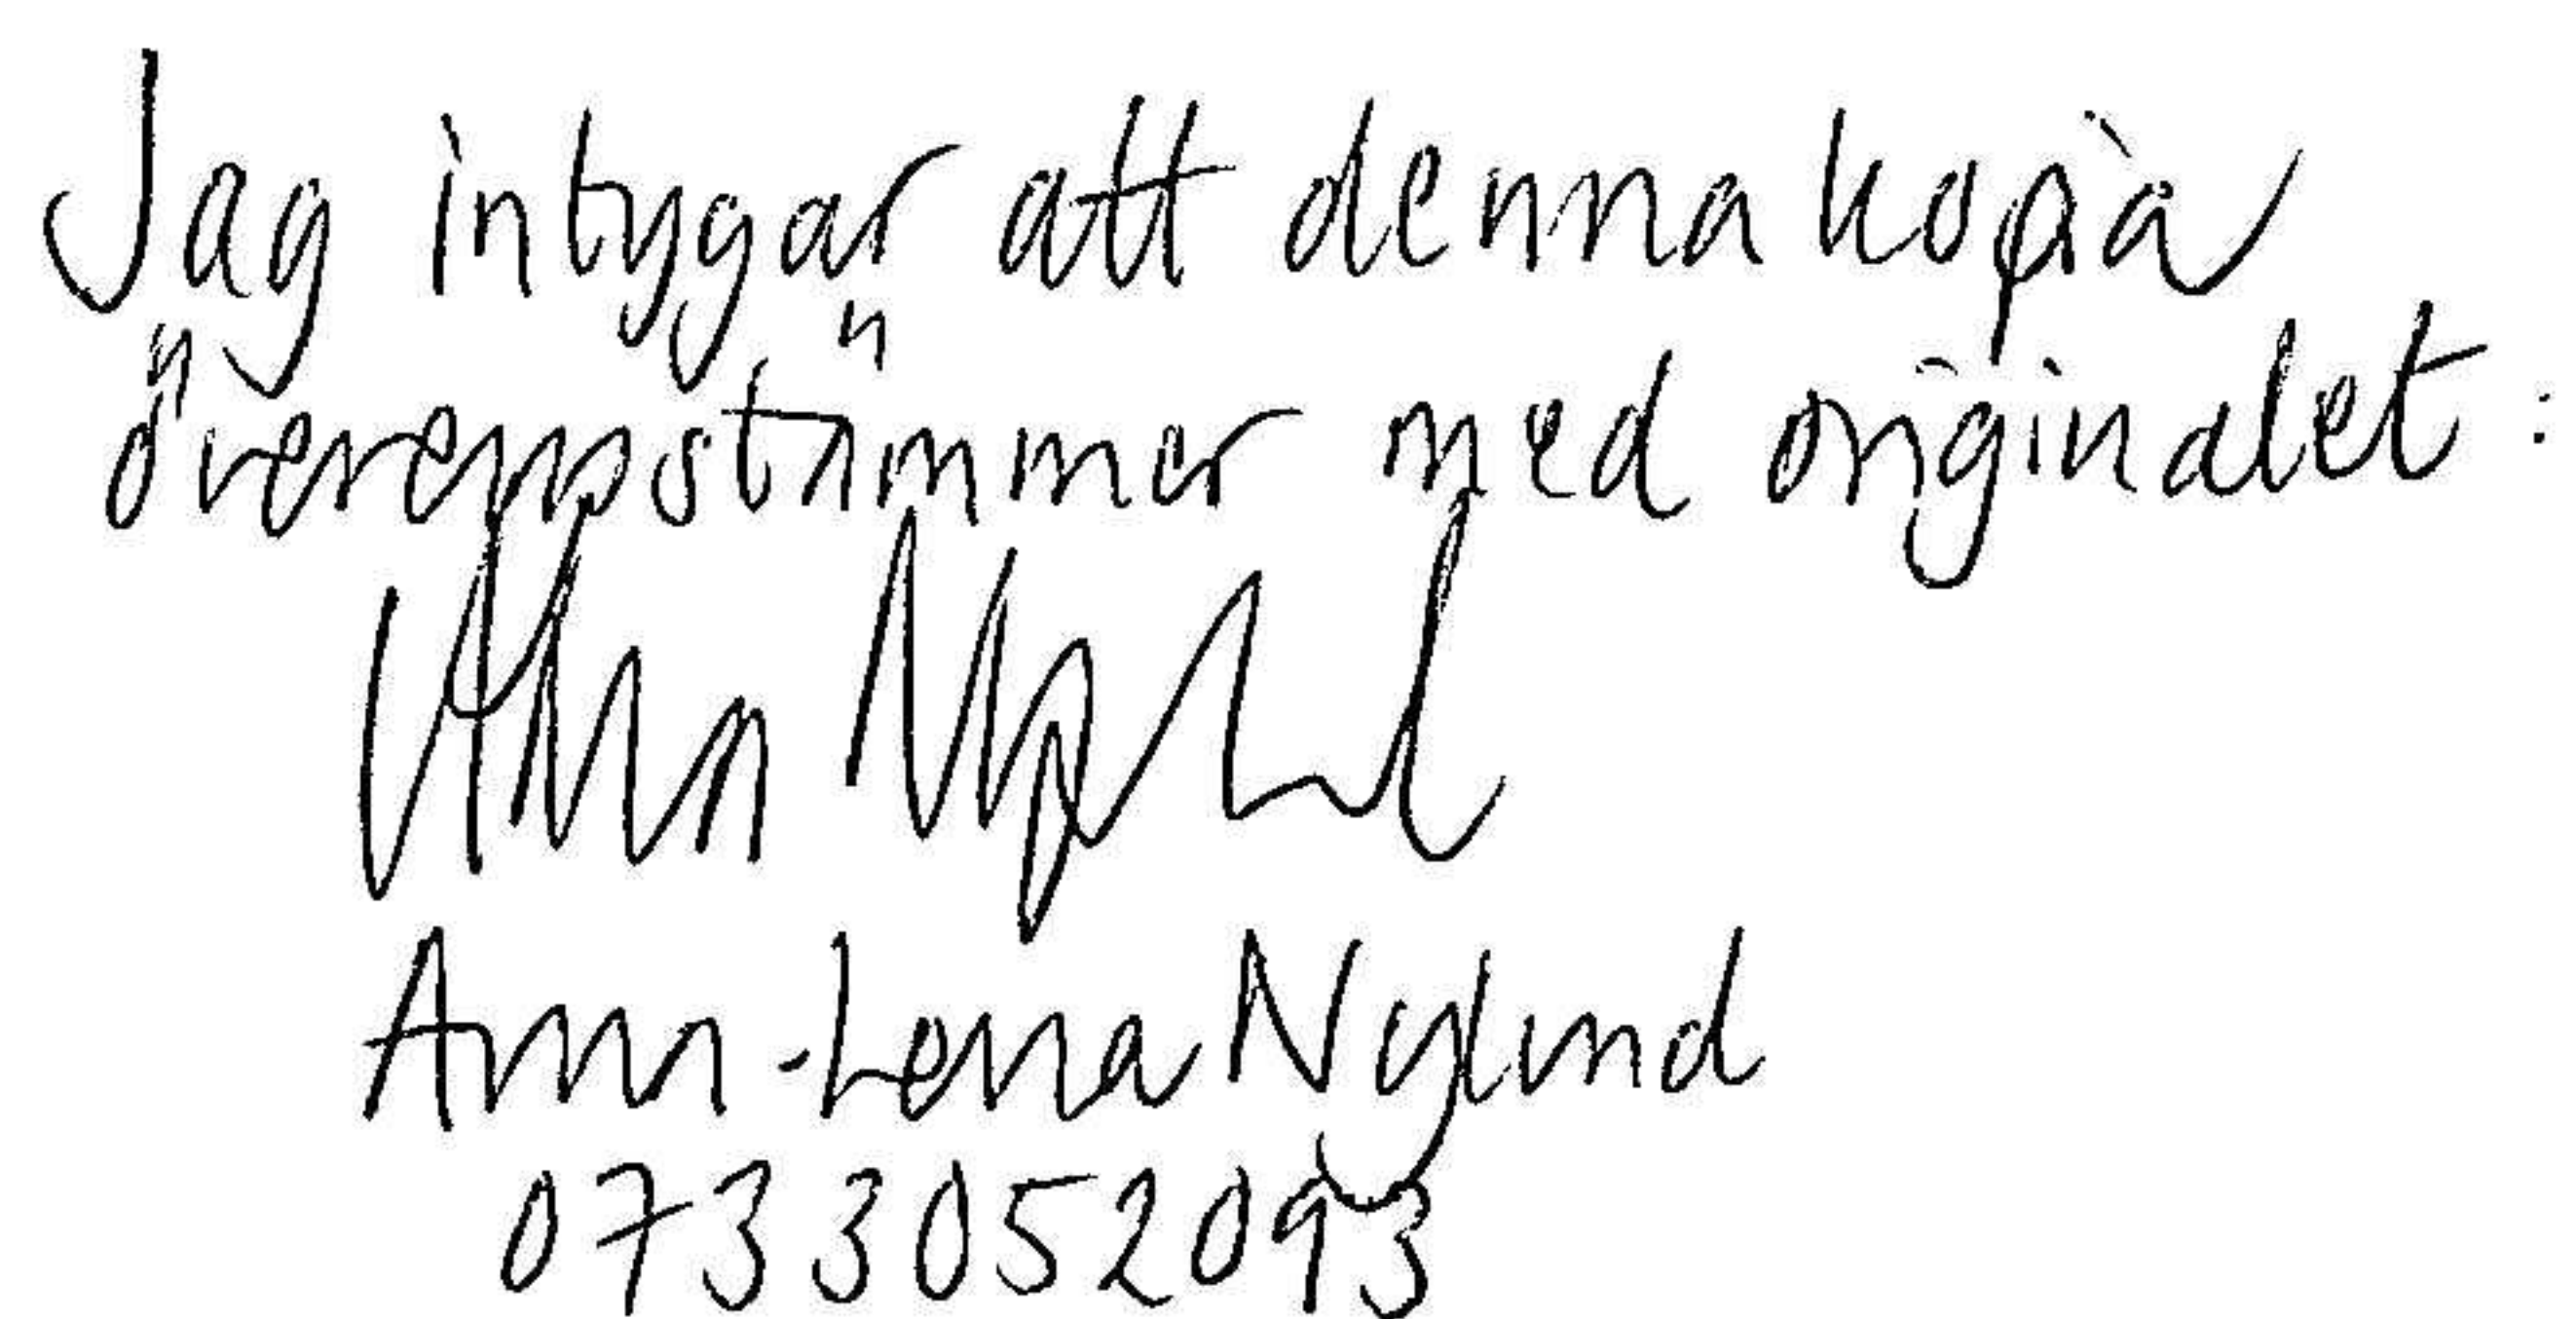 Jag intygar att denna kopia
överensstämmer med originalet:
Ann Nylund
Ann-Lena Nylund
0733052093